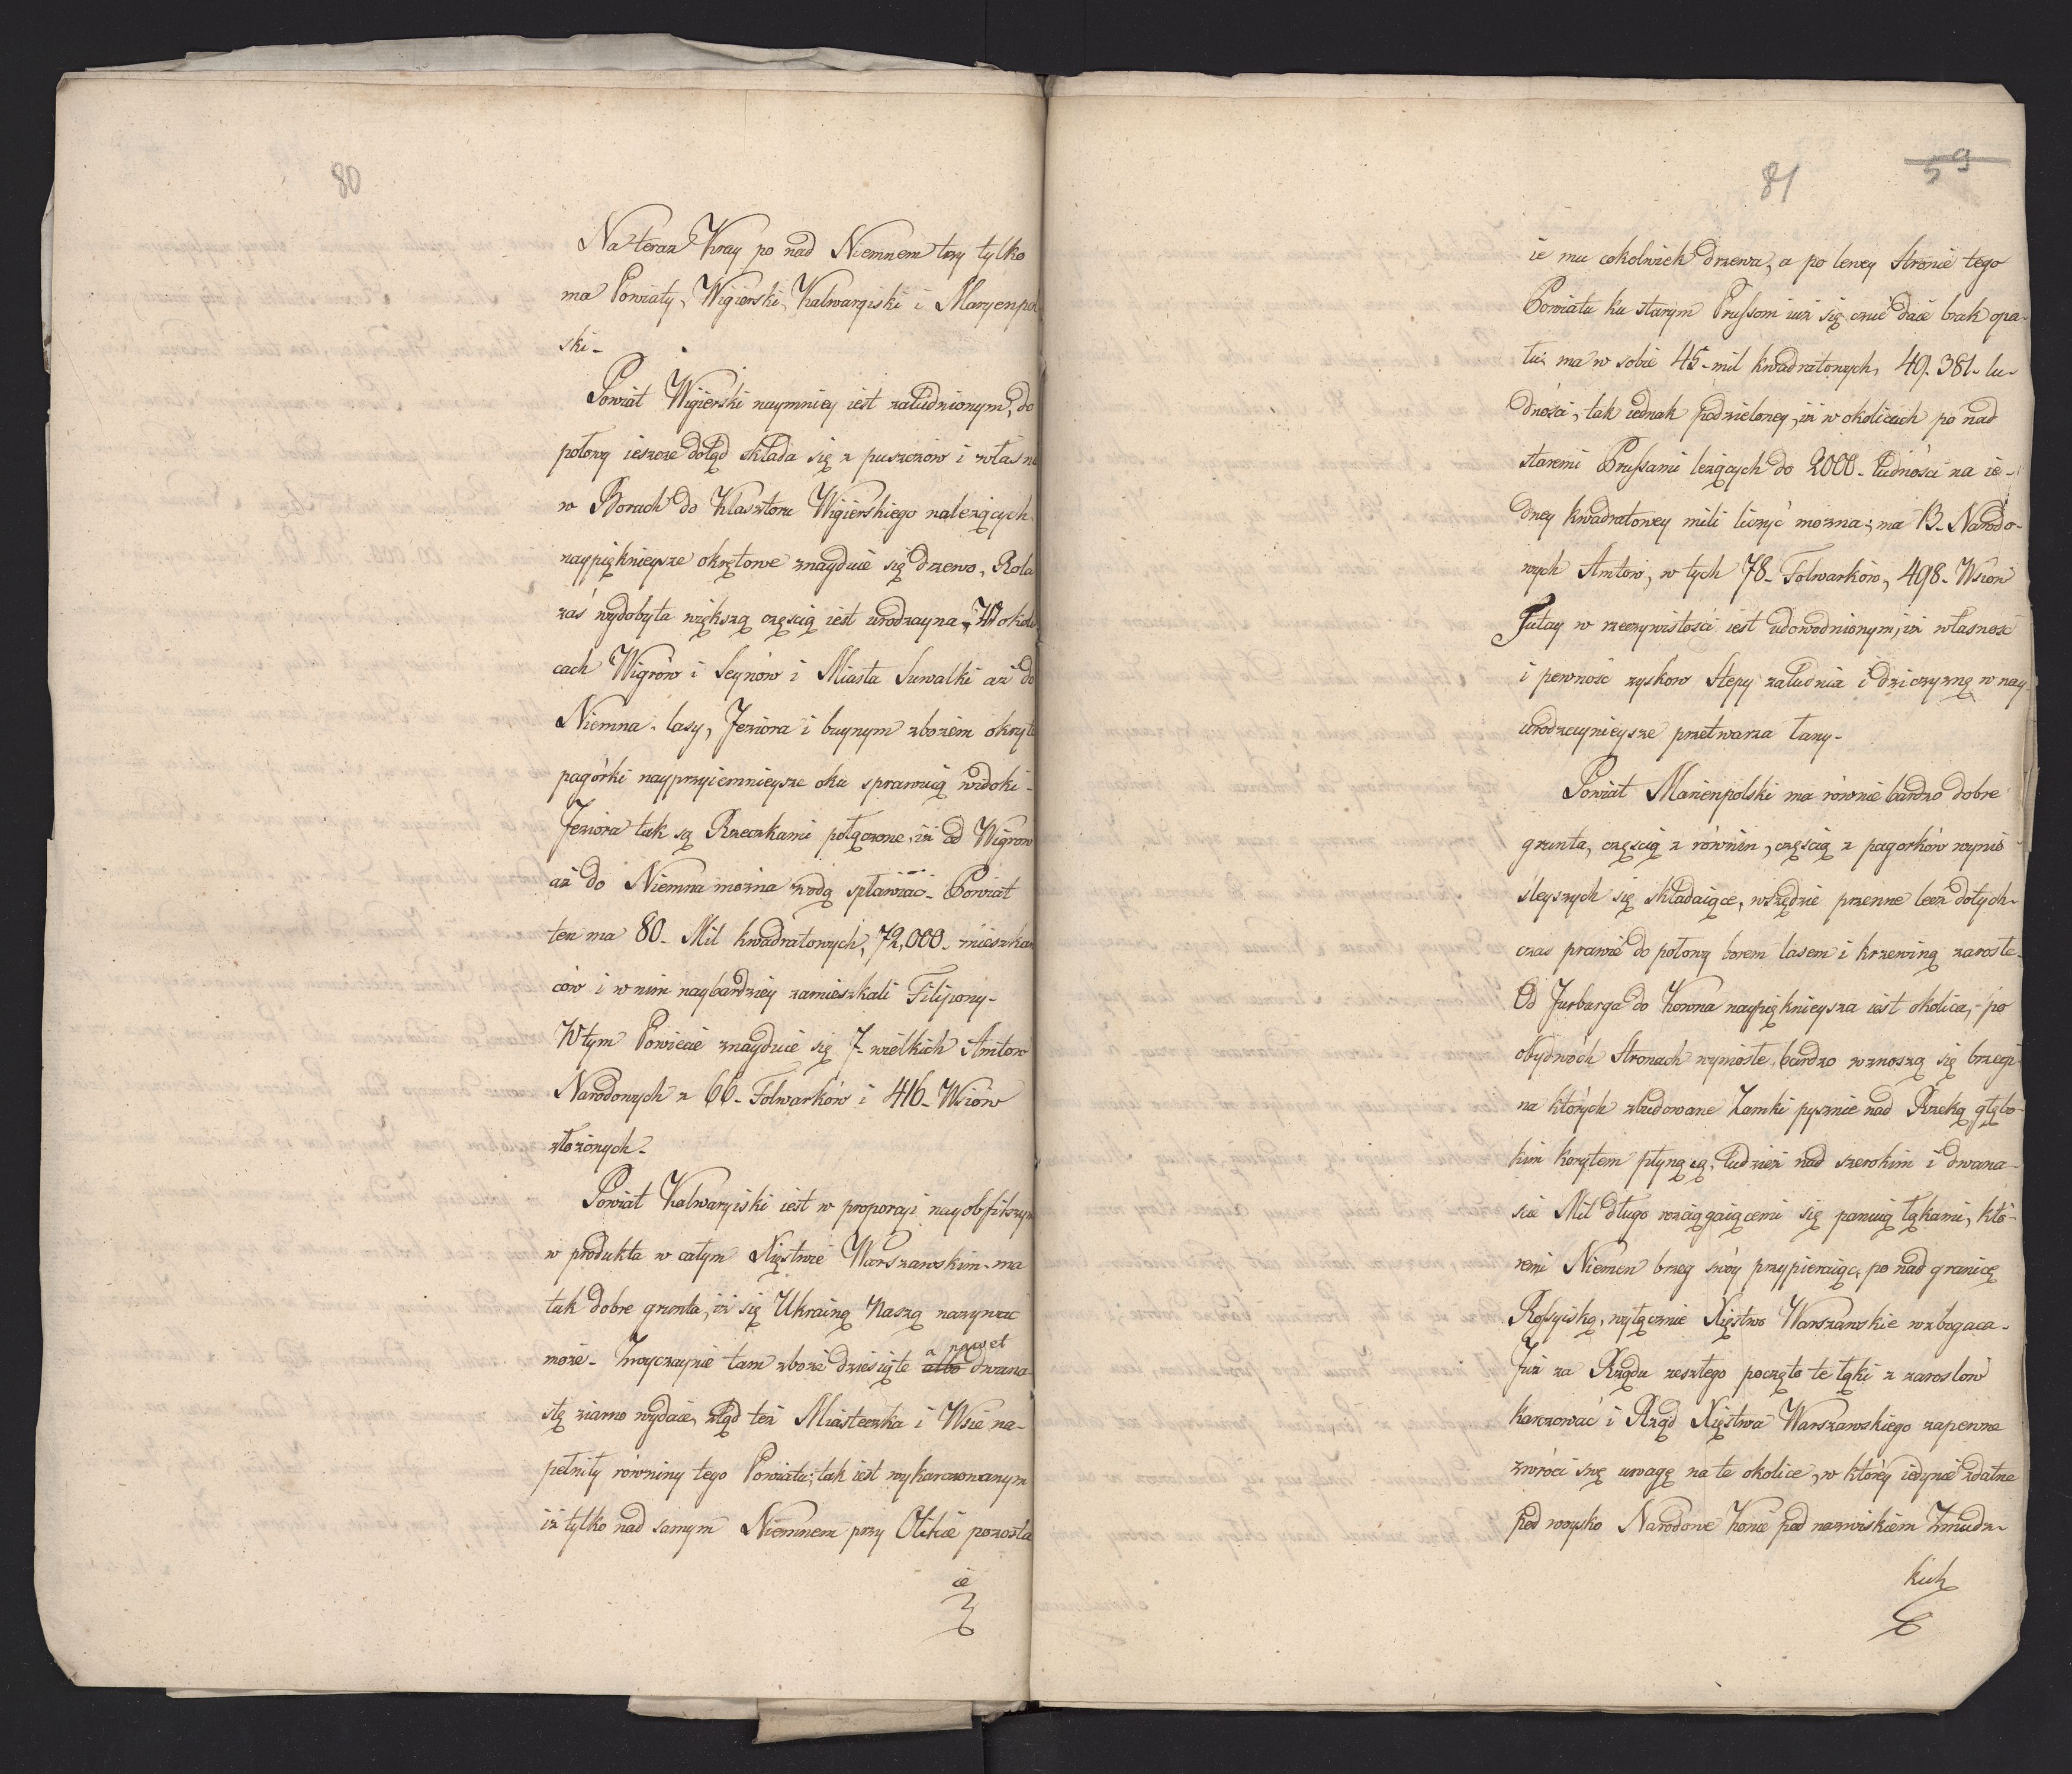 80
Na teraz Kray po nad Niemnem trzy tylko
ma Powiaty, Wigierski, Kalwaryiski i Maryenpol
ski -
Powiat Wigierski naymniey iest zaludnionym, do
połowy ieszcze dotąd składa się z puszczów i własnie
w Borach do Klasztoru Wigierskiego należących
naypięknieysze okrętowe znayduie się drzewo, Rola
zaś wydobyta większą częscią iest urodzayna, W okoli
cach Wigrów i Seynów i Miasta Suwalki aż do
Niemna - lasy, Jeziora i buynym zbożem okryte
pagórki nayprzyiemnieysze oku sprawuią widoki -
Jeziora tak są Rzeczkami połączone, iż od Wigrów
aż do Niemna można wodą spławiać - Powiat
ten ma 80 - Mil kwadratowych, 72,000 - mieszkań
ców i w nim naybardziey zamieszkali Filipony -
W tym Powiecie znayduie się 7 - wielkich Amtow
Narodowych z 66 - Folwarków i 416 - Wsiów
złożonych -
Powiat Kalwaryiski iest w proporcyi nayobfitszym
w produkta w całym Xięstwie Warszawskim - ma
tak dobre grunta, iż się Ukrainą Naszą nazywać
a nawet
może - Zwyczaynie tam zboże dziesiąte albo dwana-
stę ziarno wydaie, ztąd też Miasteczka i Wsie na-
pełniły równiny tego Powiatu, tak iest wykarczowanym
iż tylko nad samym Niemnem przy Olitie pozosta
ie
81
59
ie mu cokolwiek drzewa, a po lewey Stronie tego
Powiatu ku starym Prussom iuż się czuć daie brak opa-
łu. ma w sobie 45 - mil kwadratowych, 49.381 - lu-
dności, tak iednak podzieloney, iż w okolicach po nad
staremi Prussami leżących do 2000 - ludności na ie-
dney kwadratowey mili liczyć można; ma 13 - Narodo-
wych Amtow, w tych 78 - Folwarków, 498 - Wsiow
Tutay w rzeczywistości iest udowodnionym, iż własność
i pewność zysków Stepy zaludnia i dziczyznę w nay-
urodzaynieysze przetwarza łany -
Powiat Marienpolski ma równie bardzo dobre
grunta, częscią z równin, częscią z pagorków wynio
śleyszych się składaiące, wszędzie pszenne lecz dotych-
czas prawie do połowy borem lasem i krzewiną zarosłe -
Od Jurburga do Kowna naypięknieysza iest okolica, - po
obydwóch Stronach wyniosłe bardzo wznoszą się brzegi
na których zbudowane Zamki pysznie nad Rzeką głębo-
kim korytem płynącą, tudzież nad szerokim i dwana-
ście Mil długo rozciągaiącemi się panuią łąkami, któ-
remi Niemen brzeg swóy przypieraiąc, po nad granicę
Rossyiską, wyłącznie Xięstwo Warszawskie wzbogaca -
Już za Rządu zeszłego poczęto te łąki z zarosłow
karczować i Rząd Xięstwa Warszawskiego zapewne
zwróci swę uwagę na te okolice, w którey iedynie zdatne
pod woysko Narodowe Konie pod nazwiskiem Zmudz-
kich